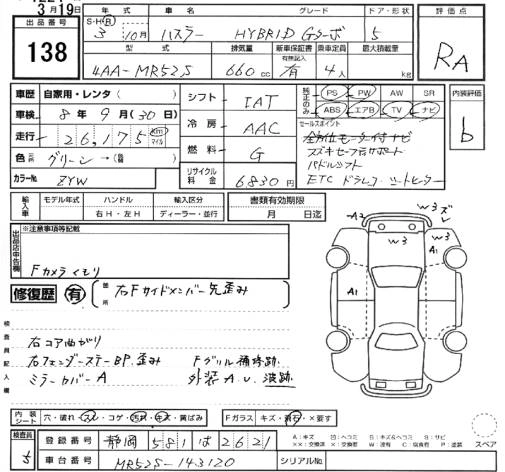 3月19日
出品番号
138
年式
S・H・R 3年 10月
車名
ハスラー
グレード
HYBRID Gターボ
ドア・形状
5
評価点
RA
型式
4AA-MR52S
排気量
660 cc
新車保証書
有無記入
有
乗車定員
4人
最大積載量
kg
車歴 自家用・レンタ
車検 8年 9月(30日)
走行 26,175 km マイル
色 グリーン→
カラーNo. ZYW
シフト IAT
冷房 AAC
燃料 G
リサイクル料金 6830円
純正のみ
PS PW AW SR
ABS エアB TV ナビ
セールスポイント
全方位モニター付ナビ
スズキセーフティサポート
パドルシフト
ETC ドラレコ シートヒーター
内装評価
b
輸入車
モデル年式
ハンドル
右H・左H
輸入区分
ディーラー・並行
書類有効期限
月 日迄
出品店申告欄
※注意事項等記載
Fカメラくもり
修復歴 有 箇所 右Fサイドメンバー先歪み
検査員記入欄
右コア曲がり
右フェンダーステーBP、歪み Fグリル補修跡
ミラーカバーA 外装A.U.波跡
A2 W3 ズレ
W3
W3
A1
A1
内装シート 穴・破れ・スレ・コゲ・汚れ・キズ・黄ばみ
Fガラス キズ・飛石・×要す
検査員 5
登録番号 静岡 581 は 2621
車台番号 MR52S-143120
シリアルNo.
A:キズ U:凹ヘコミ B:キズ&ヘコミ S:サビ
××:交換済 ×:要交換 W:波有 C:腐食有 P:塗装
スペア